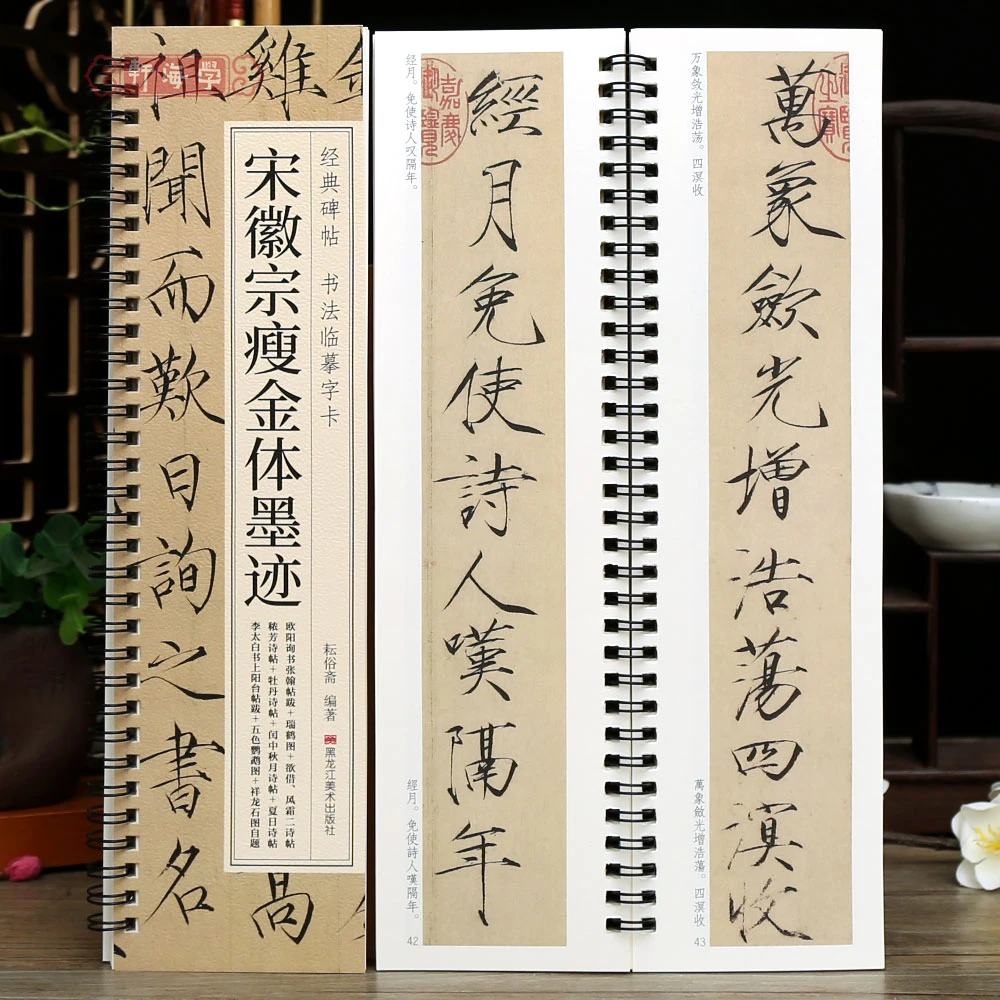 新海学
祖
聞而歎日詢之書名
雞
高
经典碑帖 书法临摹字卡
宋徽宗瘦金体墨迹
欧阳询书张翰帖跋+瑞鹤图+欲借、风霜二诗帖
秾芳诗帖+牡丹诗帖+闰中秋月诗帖+夏日诗帖
李太白书上阳台帖跋+五色鹦鹉图+祥龙石图自题
耘俗斋 编著
黑龙江美术出版社
经月。免使诗人叹隔年。
嘉慶御覽
經月免使詩人嘆隔年
經月。免使詩人嘆隔年。
42
万象敛光增浩荡。四溟收
萬象斂光增浩蕩四溟收
萬象斂光增浩蕩。四溟收
43